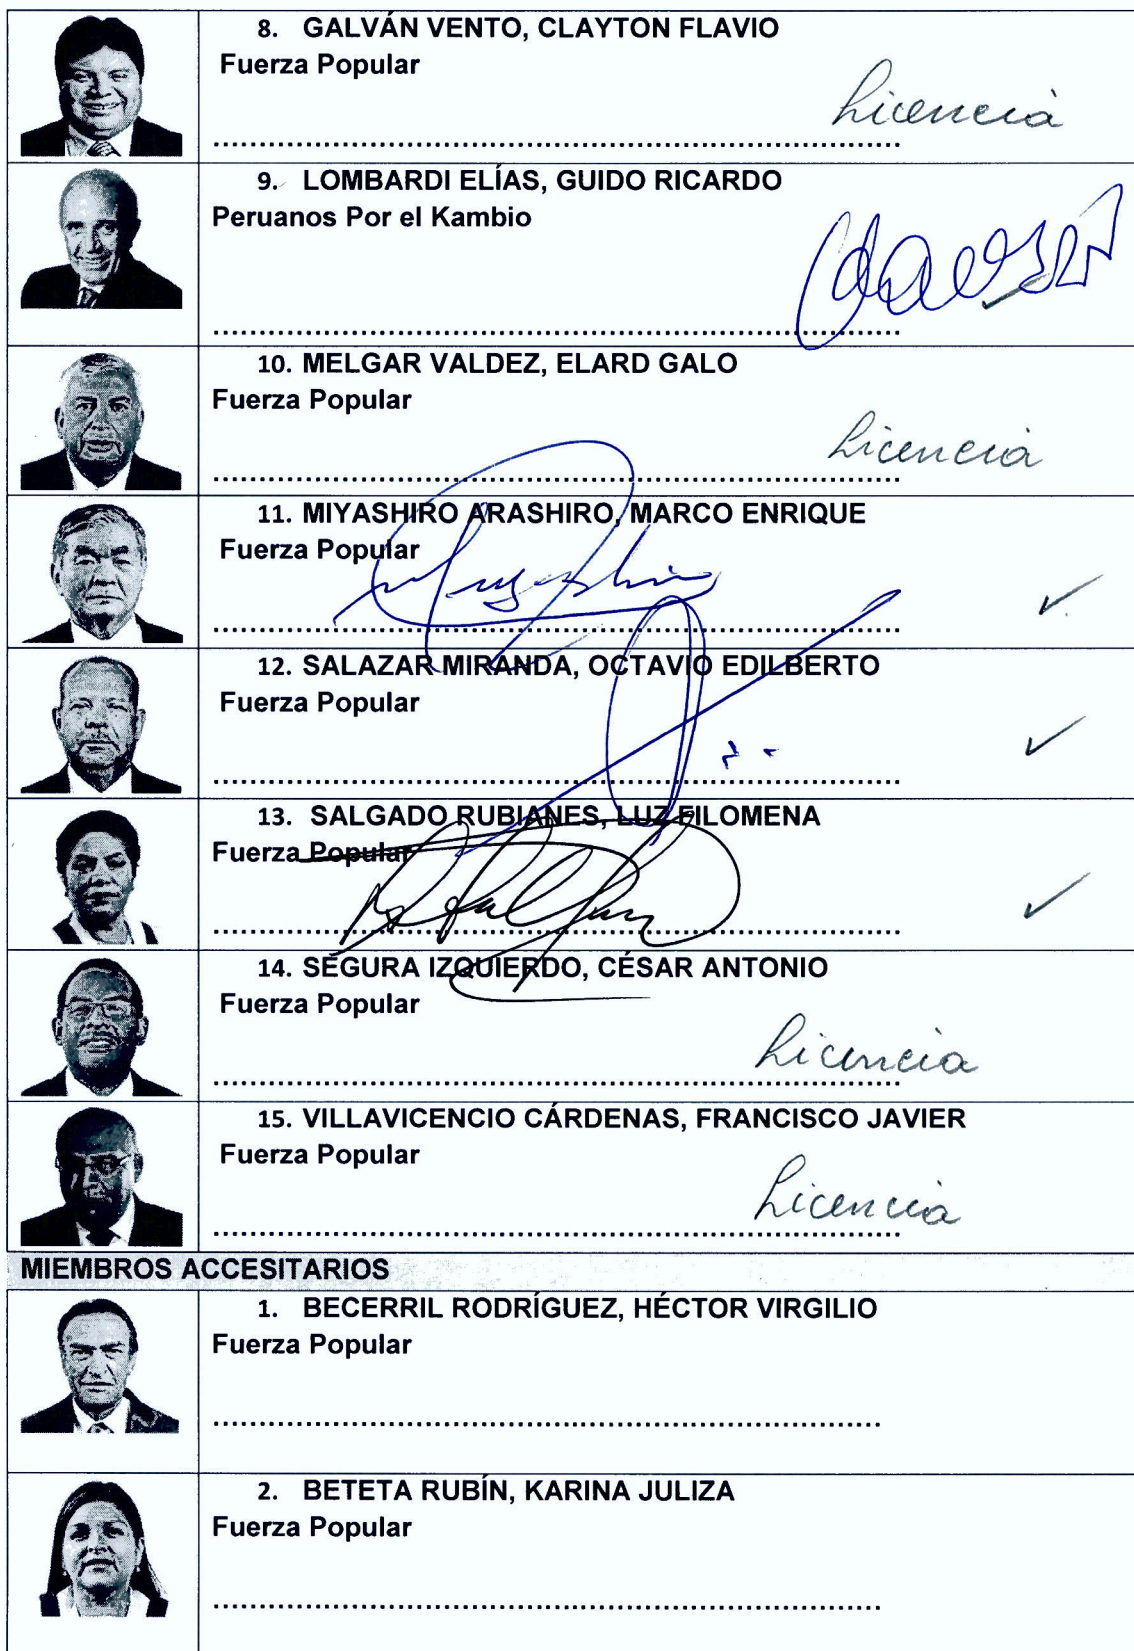 8. GALVÁN VENTO, CLAYTON FLAVIO
Fuerza Popular
Licencia
9. LOMBARDI ELÍAS, GUIDO RICARDO
Peruanos Por el Kambio
10. MELGAR VALDEZ, ELARD GALO
Fuerza Popular
Licencia
11. MIYASHIRO ARASHIRO, MARCO ENRIQUE
Fuerza Popular
12. SALAZAR MIRANDA, OCTAVIO EDILBERTO
Fuerza Popular
13. SALGADO RUBIANES, LUZ FILOMENA
Fuerza Popular
14. SEGURA IZQUIERDO, CÉSAR ANTONIO
Fuerza Popular
Licencia
15. VILLAVICENCIO CÁRDENAS, FRANCISCO JAVIER
Fuerza Popular
Licencia
MIEMBROS ACCESITARIOS
1. BECERRIL RODRÍGUEZ, HÉCTOR VIRGILIO
Fuerza Popular
2. BETETA RUBÍN, KARINA JULIZA
Fuerza Popular